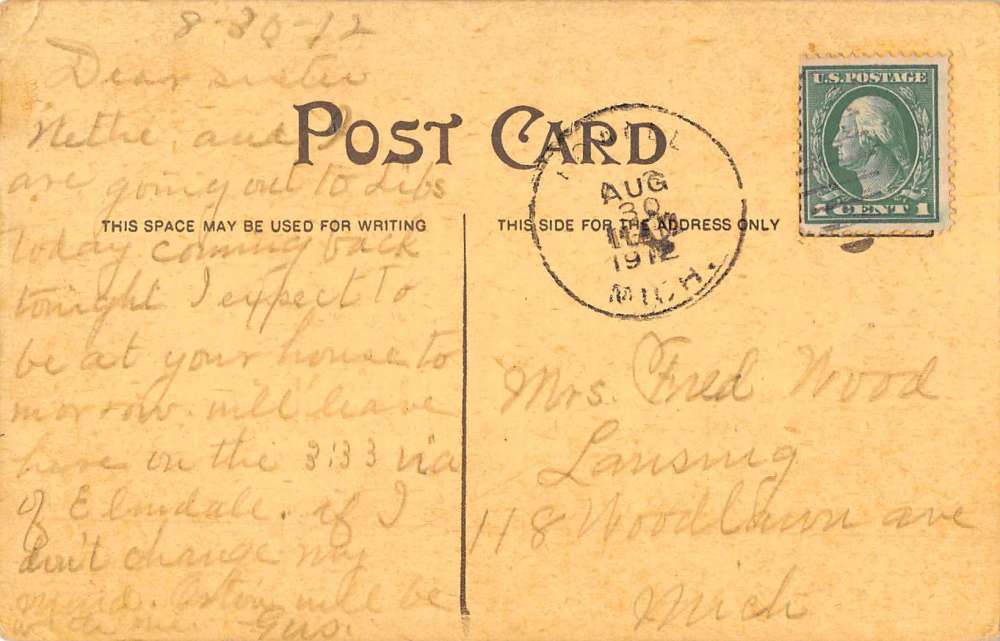 8-30-12
Dear sister
Nettie, and I
are going out to Libs
today coming back
tonight I expect to
be at your house to
morrow. will leave
here on the 3:33 via
of Elmdale. if I
don't change my
mind. will be
with me. Gus.
POST CARD
THIS SPACE MAY BE USED FOR WRITING
THIS SIDE FOR THE ADDRESS ONLY
AUG
30
1912
MICH.
U.S. POSTAGE
1 CENT 1
Mrs. Fred Wood
Lansing
118 Woodlawn ave
Mich